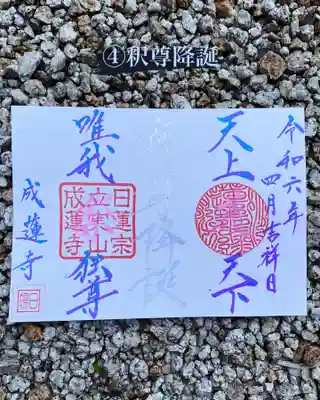 ④釈尊降誕
令和六年
四月吉祥日
天上
天下
降誕
唯我
独尊
日蓮宗
立東山
成蓮寺
成蓮寺